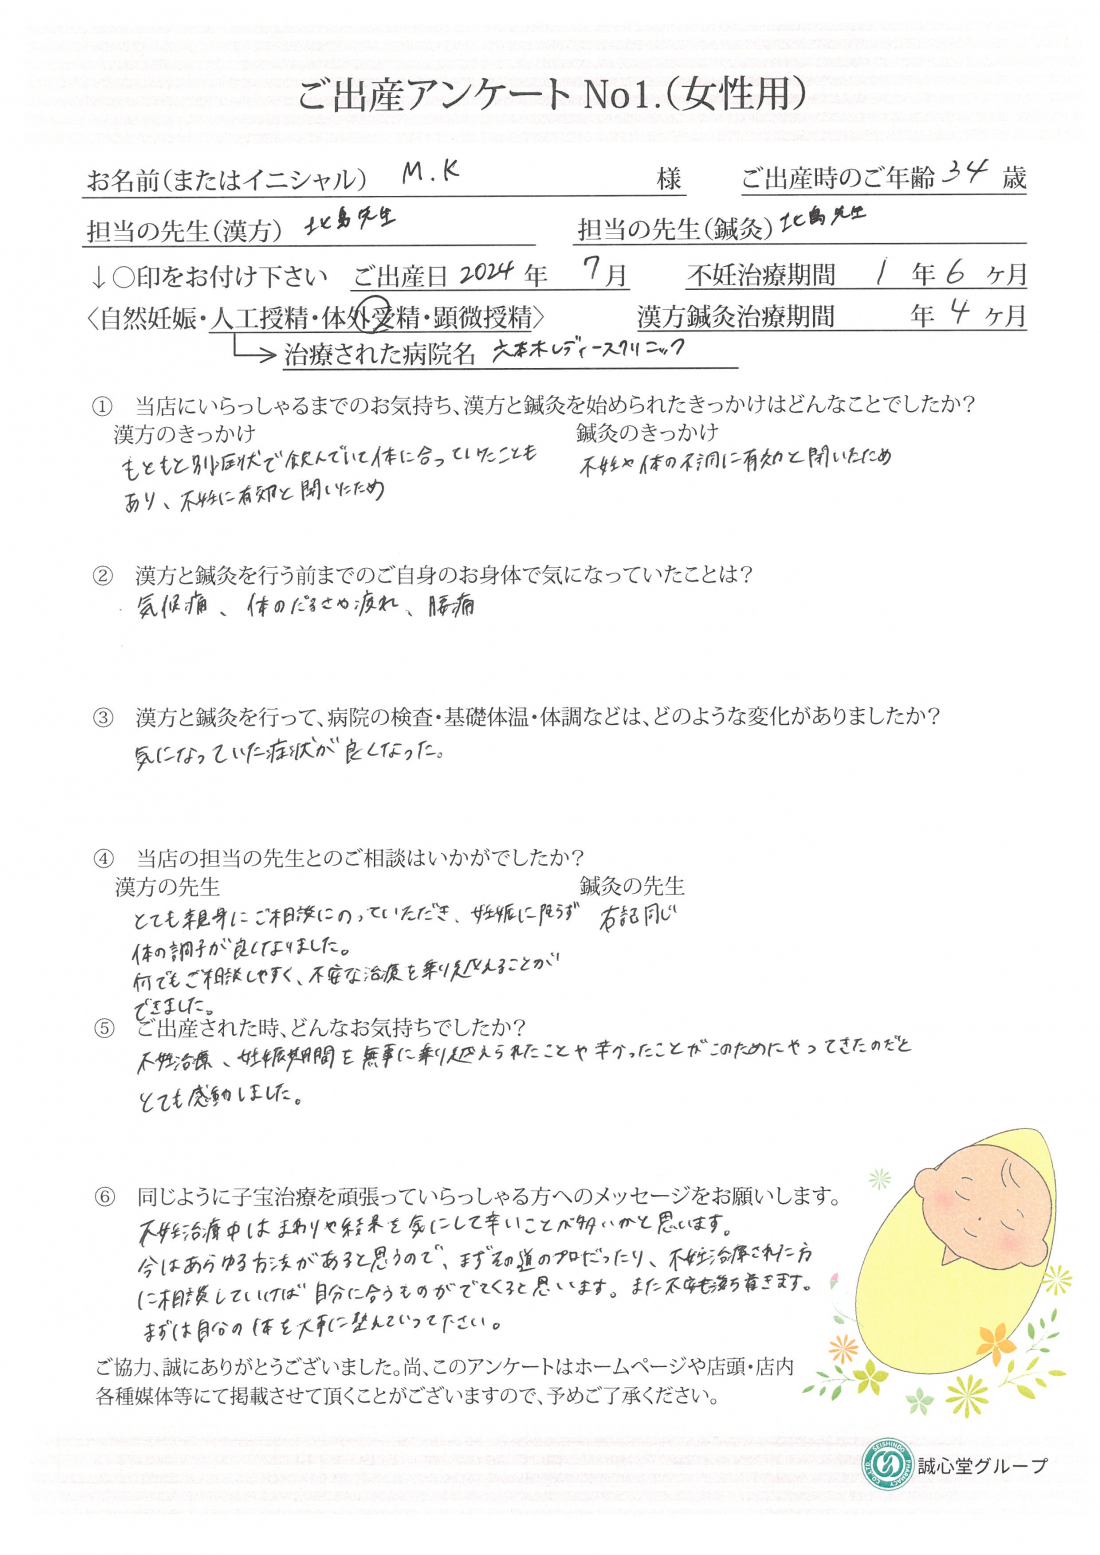 ご出産アンケート No1.（女性用）
お名前（またはイニシャル） M.K 様 ご出産時のご年齢 34 歳
担当の先生（漢方） 北島先生 担当の先生（鍼灸） 北島先生
↓〇印をお付け下さい ご出産日 2024 年 7 月 不妊治療期間 1 年 6 ヶ月
〈自然妊娠・人工授精・体外受精・顕微授精〉 漢方鍼灸治療期間 年 4 ヶ月
治療された病院名 六本木レディースクリニック
① 当店にいらっしゃるまでのお気持ち、漢方と鍼灸を始められたきっかけはどんなことでしたか？
漢方のきっかけ 鍼灸のきっかけ
もともと別症状で飲んでいて体に合っていたことも 不妊や体の不調に有効と聞いたため
あり、不妊に有効と聞いたため
② 漢方と鍼灸を行う前までのご自身のお身体で気になっていたことは？
気候痛、体のだるさや疲れ、腰痛
③ 漢方と鍼灸を行って、病院の検査・基礎体温・体調などは、どのような変化がありましたか？
気になっていた症状が良くなった。
④ 当店の担当の先生とのご相談はいかがでしたか？
漢方の先生 鍼灸の先生
とても親身にご相談にのっていただき、妊娠に限らず 右記同じ
体の調子が良くなりました。
何でもご相談しやすく、不安な治療を乗り越えることが
できました。
⑤ ご出産された時、どんなお気持ちでしたか？
不妊治療、妊娠期間を無事に乗り越えられたことや辛かったことがこのためにやってきたのだと
とても感動しました。
⑥ 同じように子宝治療を頑張っていらっしゃる方へのメッセージをお願いします。
不妊治療中はまわりや結果を気にして辛いことが多いかと思います。
今はあらゆる方法があると思うので、まずその道のプロだったり、不妊治療された方
に相談していけば自分に合うものがでてくると思います。また不安も落ち着きます。
まずは自分の体を大事に整えていって下さい。
ご協力、誠にありがとうございました。尚、このアンケートはホームページや店頭・店内
各種媒体等にて掲載させて頂くことがございますので、予めご了承ください。
SEISHINDO PHARMACY CO.,LTD. 誠心堂グループ